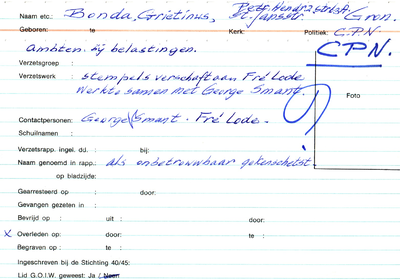 Petr. Hendrikstr. 3A
Naam etc.: Bonda, Grietinus, St. Jansstr. Gron.
Geboren: te Kerk: Politiek: C.P.N.
Ambten. bij belastingen. C.P.N.
Verzetsgroep :
Verzetswerk : stempels verschaft aan Fré Lode
Werkte samen met George Smant. Foto
Contactpersonen: George Smant. Fré Lode.
Schuilnaam :
Verzetsrapp. ingel. dd. : bij:
Naam genoemd in rapp.: als onbetrouwbaar gekenschetst.
op bladzijde:
Gearresteerd op : door:
Gevangen gezeten in :
Bevrijd op : uit : door:
x Overleden op: door: te :
Begraven op : te :
Ingeschreven bij de Stichting 40/45:
Lid G.O.I.W. geweest: Ja / Neen